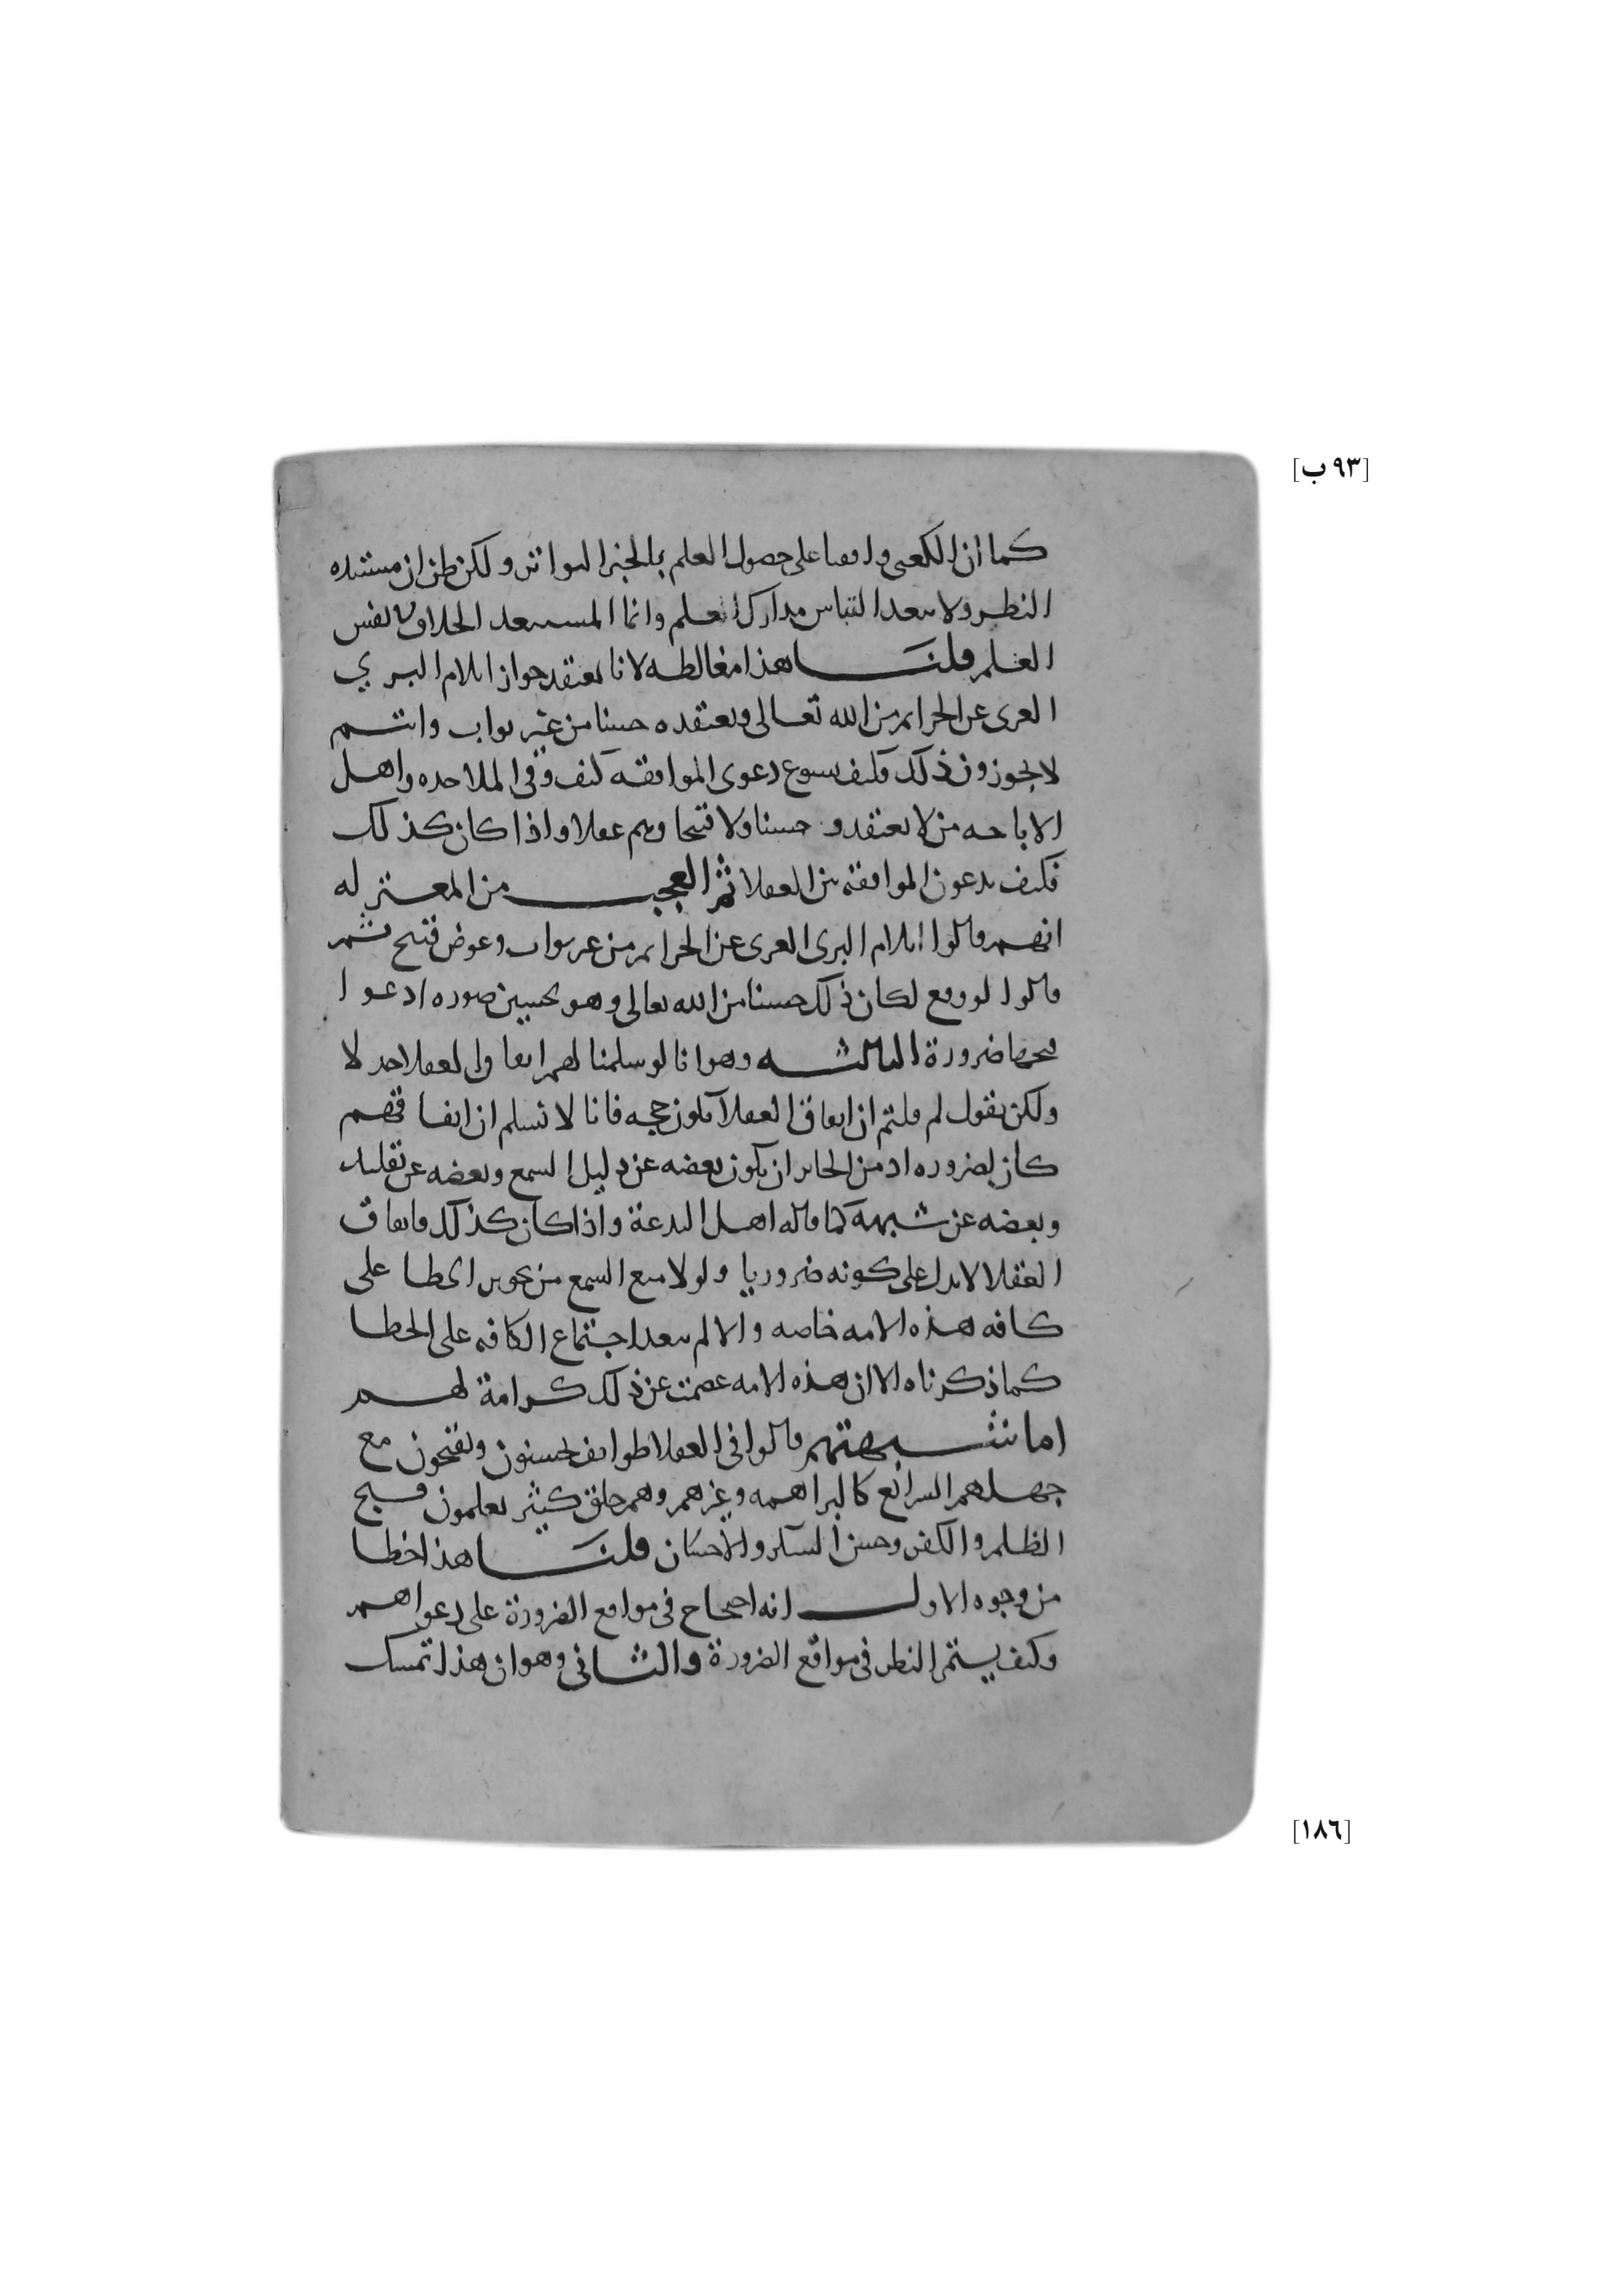 [٩٣ ب]
كما ان الكعبى وافقنا على حصول العلم بالخبر المواتر ولكن ظن ان مستنده
النظر ولا يبعد التباس مدارك العلم وانما المستبعد الخلاف فى نفس
العلم قلنا هذا مغالطه لانا نعتقد جواز ايلام البري
العرى عن الجرايم من الله تعالى ونعتقده حسنا من غير ثواب وانتم
لا تجوزون ذلك فكيف يسوع دعوى الموافقه كيف وفى الملاحده واهل
الاباحه من لا يعتقد حسنا ولا قبحا وهم عقلا واذا كان كذلك
فكيف يدعون الموافقه من العقلا ثم العجب من المعتزله
انهم قالوا ايلام البرى العرى عن الجرايم من غير ثواب وعوض قبيح ثم
قالوا لو وقع لكان ذلك حسنا من الله تعالى وهو تحسين صوره ادعوا
قبحها ضرورة الثالثه وهو انا لو سلمنا لهم اتفاق العقلا جدلا
ولكن نقول لم قلتم ان اتفاق العقلا تكون حجه فانا لا نسلم ان اتفاقهم
كان لضروره اذ من الجايز ان يكون بعضه عن دليل السمع وبعضه عن تقليد
وبعضه عن شبهة كما قاله اهل البدعة واذا كان كذلك فاتفاق
العقلا لا يدل على كونه ضروريا ولولا منع السمع من تجويز الخطا على
كافه هذه الامه خاصه والا لم يبعد اجتماع الكافه على الخطا
كما ذكرناه الا ان هذه الامه عصمت عن ذلك كرامة لهم
اما شبهتهم قالوا فى العقلا طوايف يحسنون ويقبحون مع
جهلهم الشرائع كالبراهمه وغيرهم وهم خلق كثير يعلمون قبح
الظلم والكفر وحسن الشكر والاحسان قلنا هذا خطا
من وجوه الاول انه احتجاج فى مواقع الضرورة على دعواهم
وكيف يستمر النظر فى مواقع الضرورة والثانى وهو ان هذا تمسك
[١٨٦]